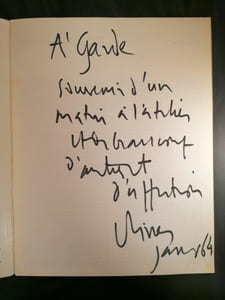 A' Garde
Souvenir d'un
matin à l'atelier
et de beaucoup
d'autres
d'affection

janv 64